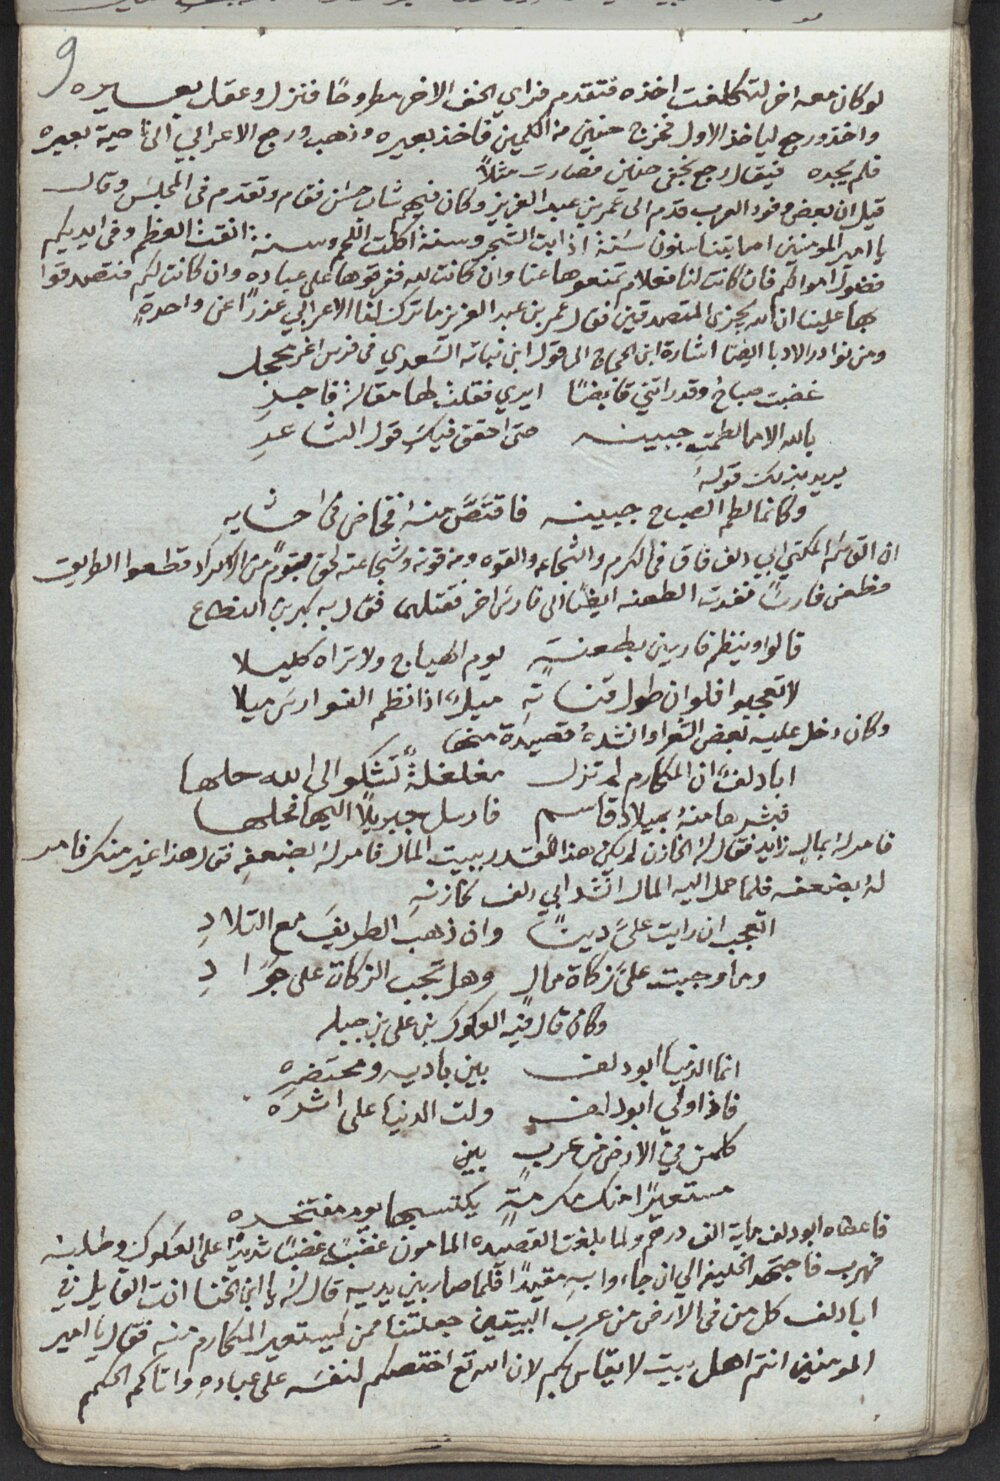 9
لو كان معه اخر لتكلفت اخذه فتقدم فراي الخف الاخر مطروحًا فنزل وعقل بعيره
واخذه ورجع لياخذ الاول فخرج حنين من الكمين فاخذ بعيره وذهب ورجع الاعرابي الى ناحية بعيره
فلم يجده فيقال رجع بخفي حنين فصارت مثلاً
قيل ان بعض وفود العرب قدم الى عمر بن عبد العزيز وكان فيهم شاب حسن فقام وتقدم في المجلس وقال
يا امير المومنين اصابتنا سنون سنة اذابت الشحم وسنة اكلت اللحم وسنة انقت العظم وفي ايديكم
فضول اموالكم فان كانت لنا فعلام تمنعوها عنا وان كانت لله ففرقوها على عباده وان كانت لكم فتصدقوا
بها علينا ان الله يجزي المتصدقين فقال عمر بن عبد العزيز ما ترك لنا الاعرابي عذرًا عن واحدةٍ
ومن نوادر الادبا ايضا اشارة ابن الحجاج الى قول ابن نباته السعدي في فرس اغر محجل
غضبت صباح وقد راتني قابضًا ايري فقلت لها مقالة فاجرِ
بالله الا ما لطمت جبينه حتى احقق فيك قول الشاعرِ
يريد بذلك قوله
وكانما لطم الصباح جبينه فاقتصَّ منه فخاض في احشايه
ان القاسم المكنى ابي دلف فاق في الكرم والشجاعه والقوه ومن قوته وشجاعته لحق قومًا من الاكراد قطعوا الطريق
فطعن فارسًا نفدت الطعنه ايضًا الى فارس اخر فقتلهما فقال به بكر بن النطاح
قالوا وينظم فارسين بطعنةٍ يوم الهياج ولا تراه كليلا
لا تعجبوا فلو ان طول قناته ميلٌ اذا نظم الفوارس ميلا
وكان دخل عليه بعض الشعرا وانشدهُ قصيدة منها
ابا دلف ان المكارم لم تزل مغلغلةً تشكو الى الله حلها
فبشرها منهُ بميلاد قاسم فارسل جبريلاً اليها فحلها
فامر لهُ بمال زايد فقال لهُ الخازن لم يكن هذا القدر ببيت المال فامر لهُ بضعفه فقال هذا غير منكر فامر
لهُ بضعفه فلما حمل اليه المال انشد ابي دلف
اتعجب ان رايت عليَّ دينًا وان ذهب الطريف مع التلادِ
وما وجبت عليَّ زكاة مالٍ وهل تجب الزكاة على جوادِ
وكان قال فيه العكوك بن علي بن جبله
انما الدنيا ابو دلف بين باديه ومحتضره
فاذا ولي ابو دلف ولت الدنيا على اثره
كلمن في الارض من عربٍ بين
مستعيرًا منك مكرمةٍ يكتسبها يوم مفتخره
فاعطاه ابو دلف ماية الف درهم ولما بلغت القصيده المامون غضب غضبًا شديدًا على العكوك وطلبه
فهرب فاجتهد الخليفه الي ان جاءوا به مقيدًا فلما صار بين يديه قال له يا ابن اللخنا انت القايل في
ابا دلف كل من في الارض من عرب البيتين جعلتنا ممن يستعير المكارم منه فقال يا امير
المومنين انتم اهل بيت لا يقاس بكم لان الله تع اختصكم لنفسه على عباده واتاكم الحكم